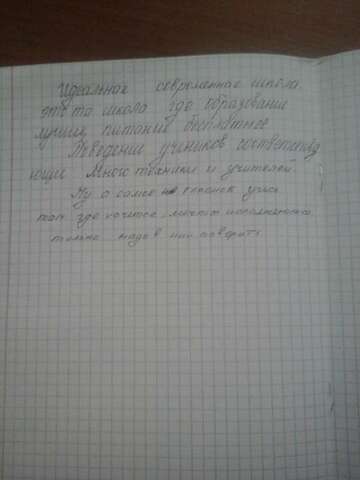 Идеальная современная школа
это та школа где образование
лучше, питание бесплатное
Поведение учеников соответству
ющие Много техники и учителей.
Ну а самое
там где хочется, мечты исполняются
только надо в них поверить.